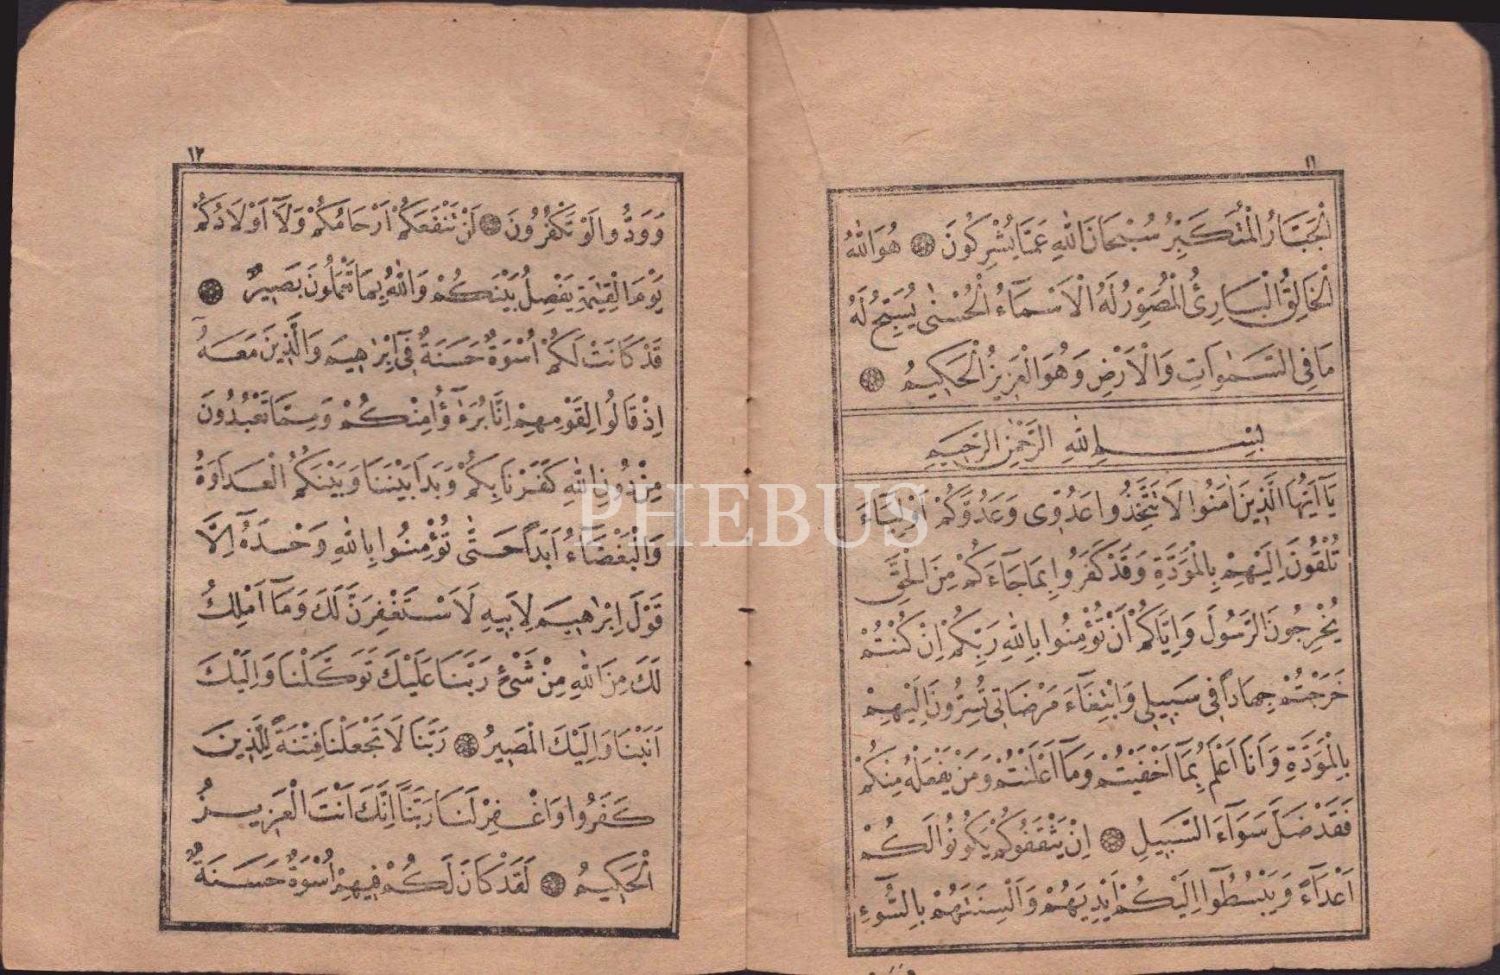 ١١
اَلْجَبَّارُ الْمُتَكَبِّرُ سُبْحَانَ اللّٰهِ عَمَّا يُشْرِكُونَ ۞ هُوَ اللّٰهُ
الْخَالِقُ الْبَارِئُ الْمُصَوِّرُ لَهُ الْاَسْمَاءُ الْحُسْنٰى يُسَبِّحُ لَهُ
مَا فِى السَّمٰوَاتِ وَالْاَرْضِ وَهُوَ الْعَزِيزُ الْحَكِيمُ ۞
بِسْمِ اللّٰهِ الرَّحْمٰنِ الرَّحِيمِ
يَآ اَيُّهَا الَّذِينَ اٰمَنُوا لَا تَتَّخِذُوا عَدُوِّى وَعَدُوَّكُمْ اَوْلِيَآءَ
تُلْقُونَ اِلَيْهِمْ بِالْمَوَدَّةِ وَقَدْ كَفَرُوا بِمَا جَآءَكُمْ مِنَ الْحَقِّ
يُخْرِجُونَ الرَّسُولَ وَاِيَّاكُمْ اَنْ تُؤْمِنُوا بِاللّٰهِ رَبِّكُمْ اِنْ كُنْتُمْ
خَرَجْتُمْ جِهَادًا فِى سَبِيلِى وَابْتِغَآءَ مَرْضَاتِى تُسِرُّونَ اِلَيْهِمْ
بِالْمَوَدَّةِ وَاَنَا اَعْلَمُ بِمَآ اَخْفَيْتُمْ وَمَآ اَعْلَنْتُمْ وَمَنْ يَفْعَلْهُ مِنْكُمْ
فَقَدْ ضَلَّ سَوَآءَ السَّبِيلِ ۞ اِنْ يَثْقَفُوكُمْ يَكُونُوا لَكُمْ
اَعْدَآءً وَيَبْسُطُوٓا اِلَيْكُمْ اَيْدِيَهُمْ وَاَلْسِنَتَهُمْ بِالسُّٓوءِ
١٢
وَوَدُّوا لَوْ تَكْفُرُونَ ۞ لَنْ تَنْفَعَكُمْ اَرْحَامُكُمْ وَلَآ اَوْلَادُكُمْ
يَوْمَ الْقِيٰمَةِ يَفْصِلُ بَيْنَكُمْ وَاللّٰهُ بِمَا تَعْمَلُونَ بَصِيرٌ ۞
قَدْ كَانَتْ لَكُمْ اُسْوَةٌ حَسَنَةٌ فِىٓ اِبْرٰهِيمَ وَالَّذِينَ مَعَهُ
اِذْ قَالُوا لِقَوْمِهِمْ اِنَّا بُرَءٰٓؤُا مِنْكُمْ وَمِمَّا تَعْبُدُونَ
مِنْ دُونِ اللّٰهِ كَفَرْنَا بِكُمْ وَبَدَا بَيْنَنَا وَبَيْنَكُمُ الْعَدَاوَةُ
وَالْبَغْضَآءُ اَبَدًا حَتّٰى تُؤْمِنُوا بِاللّٰهِ وَحْدَهُٓ اِلَّا
قَوْلَ اِبْرٰهِيمَ لِاَبِيهِ لَاَسْتَغْفِرَنَّ لَكَ وَمَآ اَمْلِكُ
لَكَ مِنَ اللّٰهِ مِنْ شَىْءٍ رَبَّنَا عَلَيْكَ تَوَكَّلْنَا وَاِلَيْكَ
اَنَبْنَا وَاِلَيْكَ الْمَصِيرُ ۞ رَبَّنَا لَا تَجْعَلْنَا فِتْنَةً لِلَّذِينَ
كَفَرُوا وَاغْفِرْ لَنَا رَبَّنَا اِنَّكَ اَنْتَ الْعَزِيزُ
الْحَكِيمُ ۞ لَقَدْ كَانَ لَكُمْ فِيهِمْ اُسْوَةٌ حَسَنَةٌ
PHEBUS